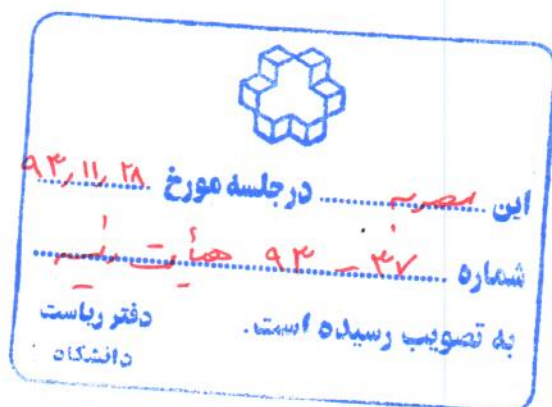 این مصوبه در جلسه مورخ ۹۳٫۱۱٫۲۸
شماره ۳۷ – ۹۳ هیأت رئیسه
به تصویب رسیده است.
دفتر ریاست
دانشکاه